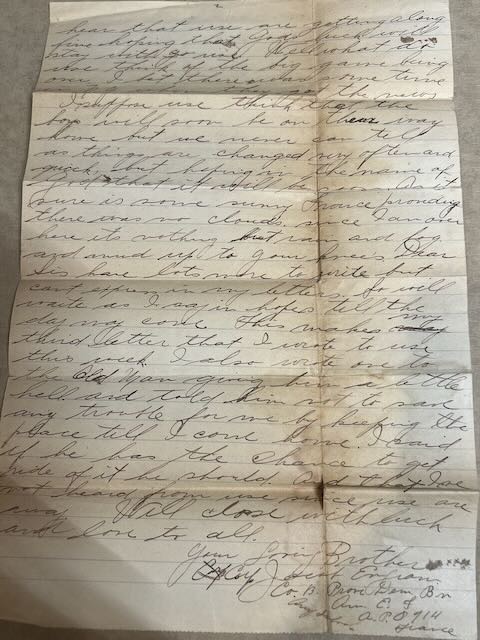 2
hear that use are getting along
fine hoping that Gods luck will
stay with use. Well what did
use think of the big game being
over I bet there was some time
the news
I suppose use think that the
boys will soon be on their way
home but we never can tell
as things are changed very often and
quick, but hoping in the name of
God that it will be soon.
sure is some sunny France providing
there was no clouds. since I am over
here its nothing but rain and fog
and mud up to your knee's. Dear
Sis have lots more to write but
cant express in my letters. So will
waite as I say in hopes tell the
day may come. This makes my
third letter that I wrote to use
this week. I also wrote one to
the Old Man giving him a little
hell and told him not to have
any trouble for me by keeping the
place tell I come home. I said
if he has the chance to get
ride of it he should. And that I've
not heard from use since use are
away. Will close with luck
and love to all.
Your Loving Brother xxxx
Corp. Joseph
Co. B. Prov. Dem. Bn
Am. E. F.
A.P.O. 714
France